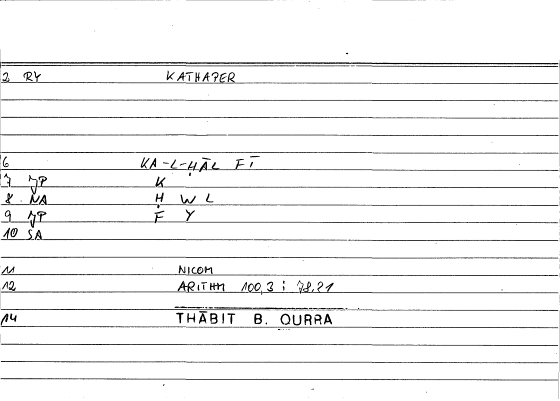 2 RY KATHAPER
6 KA-L-ḤĀL FĪ
7 JP K
8 NA Ḥ W L
9 JP F Y
10 SA
11 NICOM
12 ARITHM 100,3 ; 78.21
14 THĀBIT B. QURRA